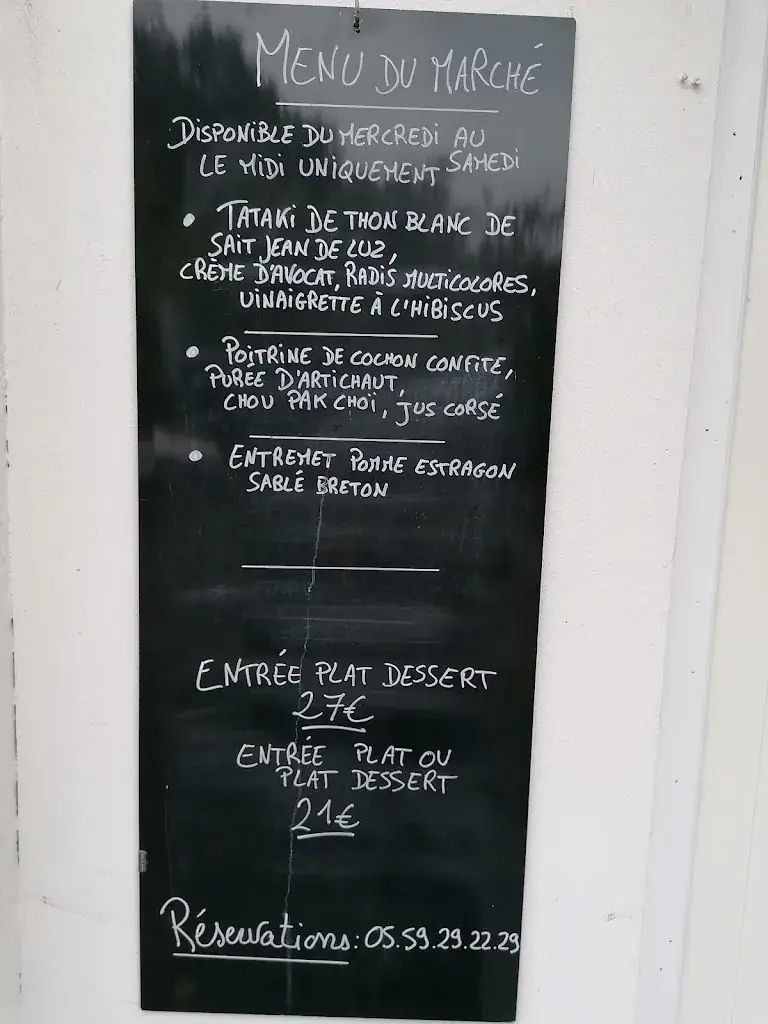 MENU DU MARCHÉ
DISPONIBLE DU MERCREDI AU SAMEDI
LE MIDI UNIQUEMENT
• TATAKI DE THON BLANC DE
SAIT JEAN DE LUZ,
CRÈME D'AVOCAT, RADIS MULTICOLORES,
VINAIGRETTE À L'HIBISCUS
• POITRINE DE COCHON CONFITE,
PURÉE D'ARTICHAUT,
CHOU PAK CHOÏ, JUS CORSÉ
• ENTREMET POMME ESTRAGON
SABLÉ BRETON
ENTRÉE PLAT DESSERT
27€
ENTRÉE PLAT OU
PLAT DESSERT
21€
Réservations: 05.59.29.22.29